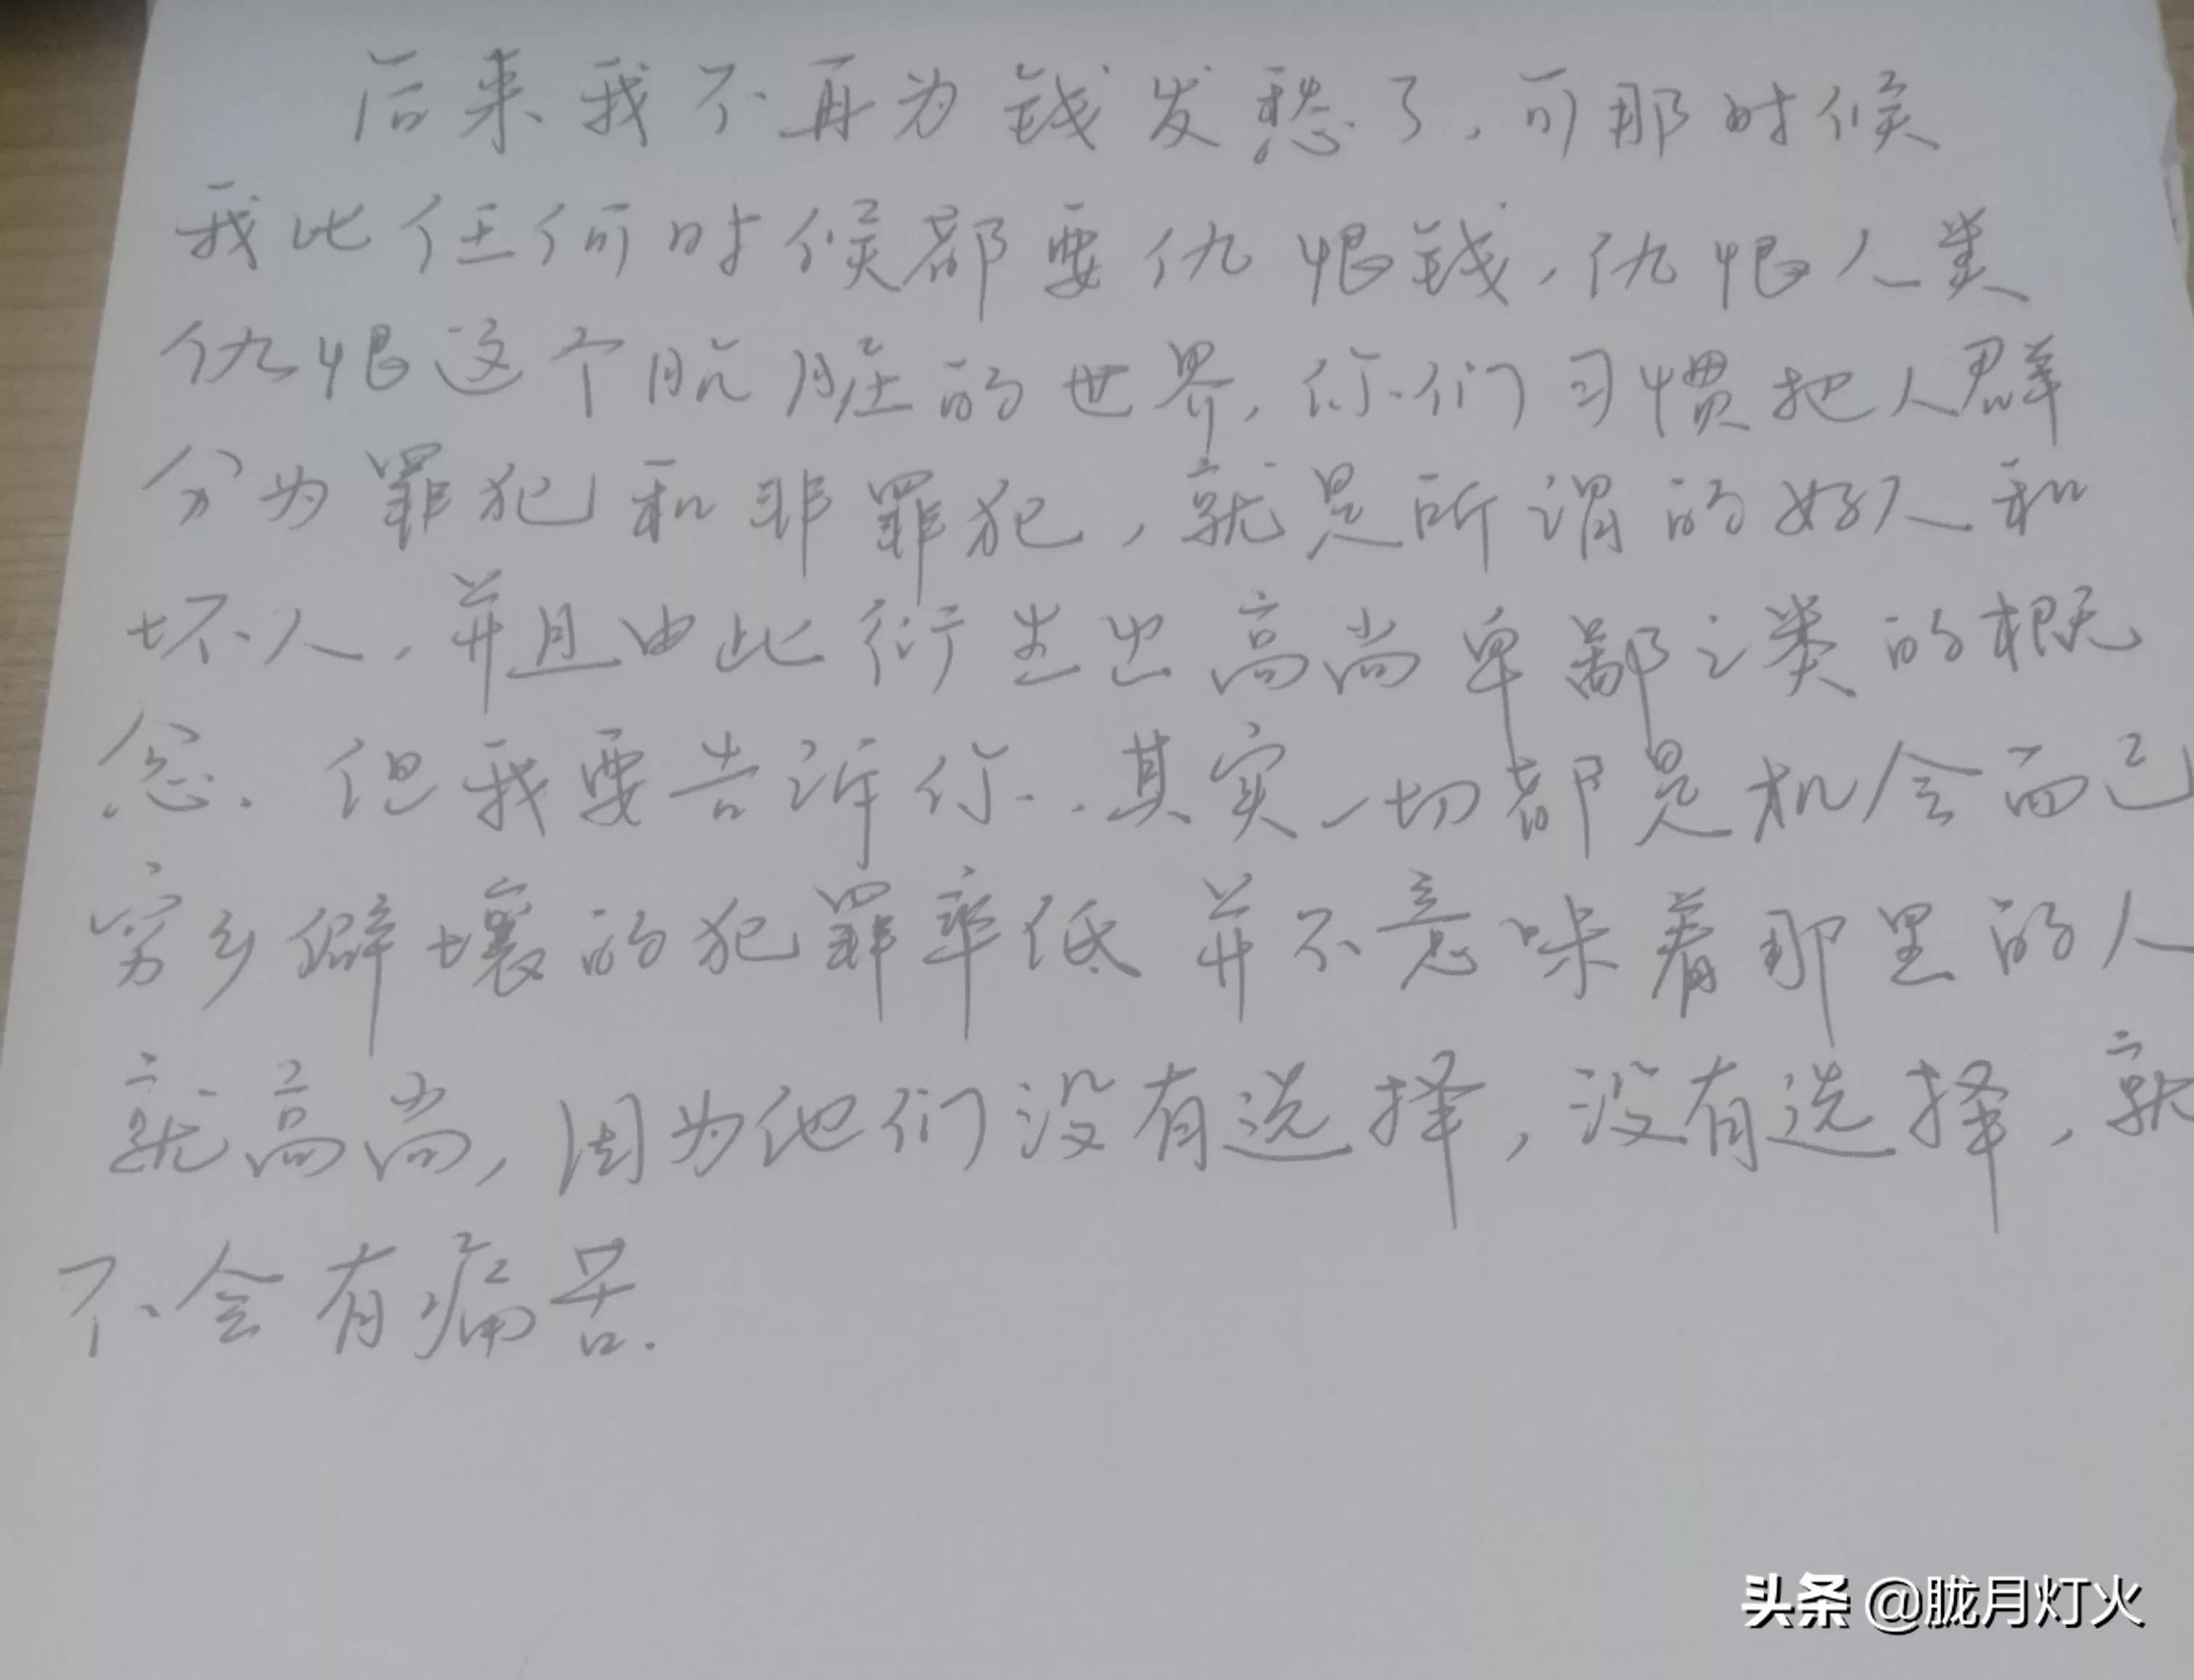 后来我不再为钱发愁了，可那时候
我比任何时候都要仇恨钱，仇恨人类
仇恨这个肮脏的世界，你们习惯把人群
分为罪犯和非罪犯，就是所谓的好人和
坏人，并且由此衍生出高尚卑鄙之类的概
念，但我要告诉你..其实一切都是机会而已
穷乡僻壤的犯罪率低并不意味着那里的人
就高尚，因为他们没有选择，没有选择，就
不会有痛苦.
头条 @胧月灯火